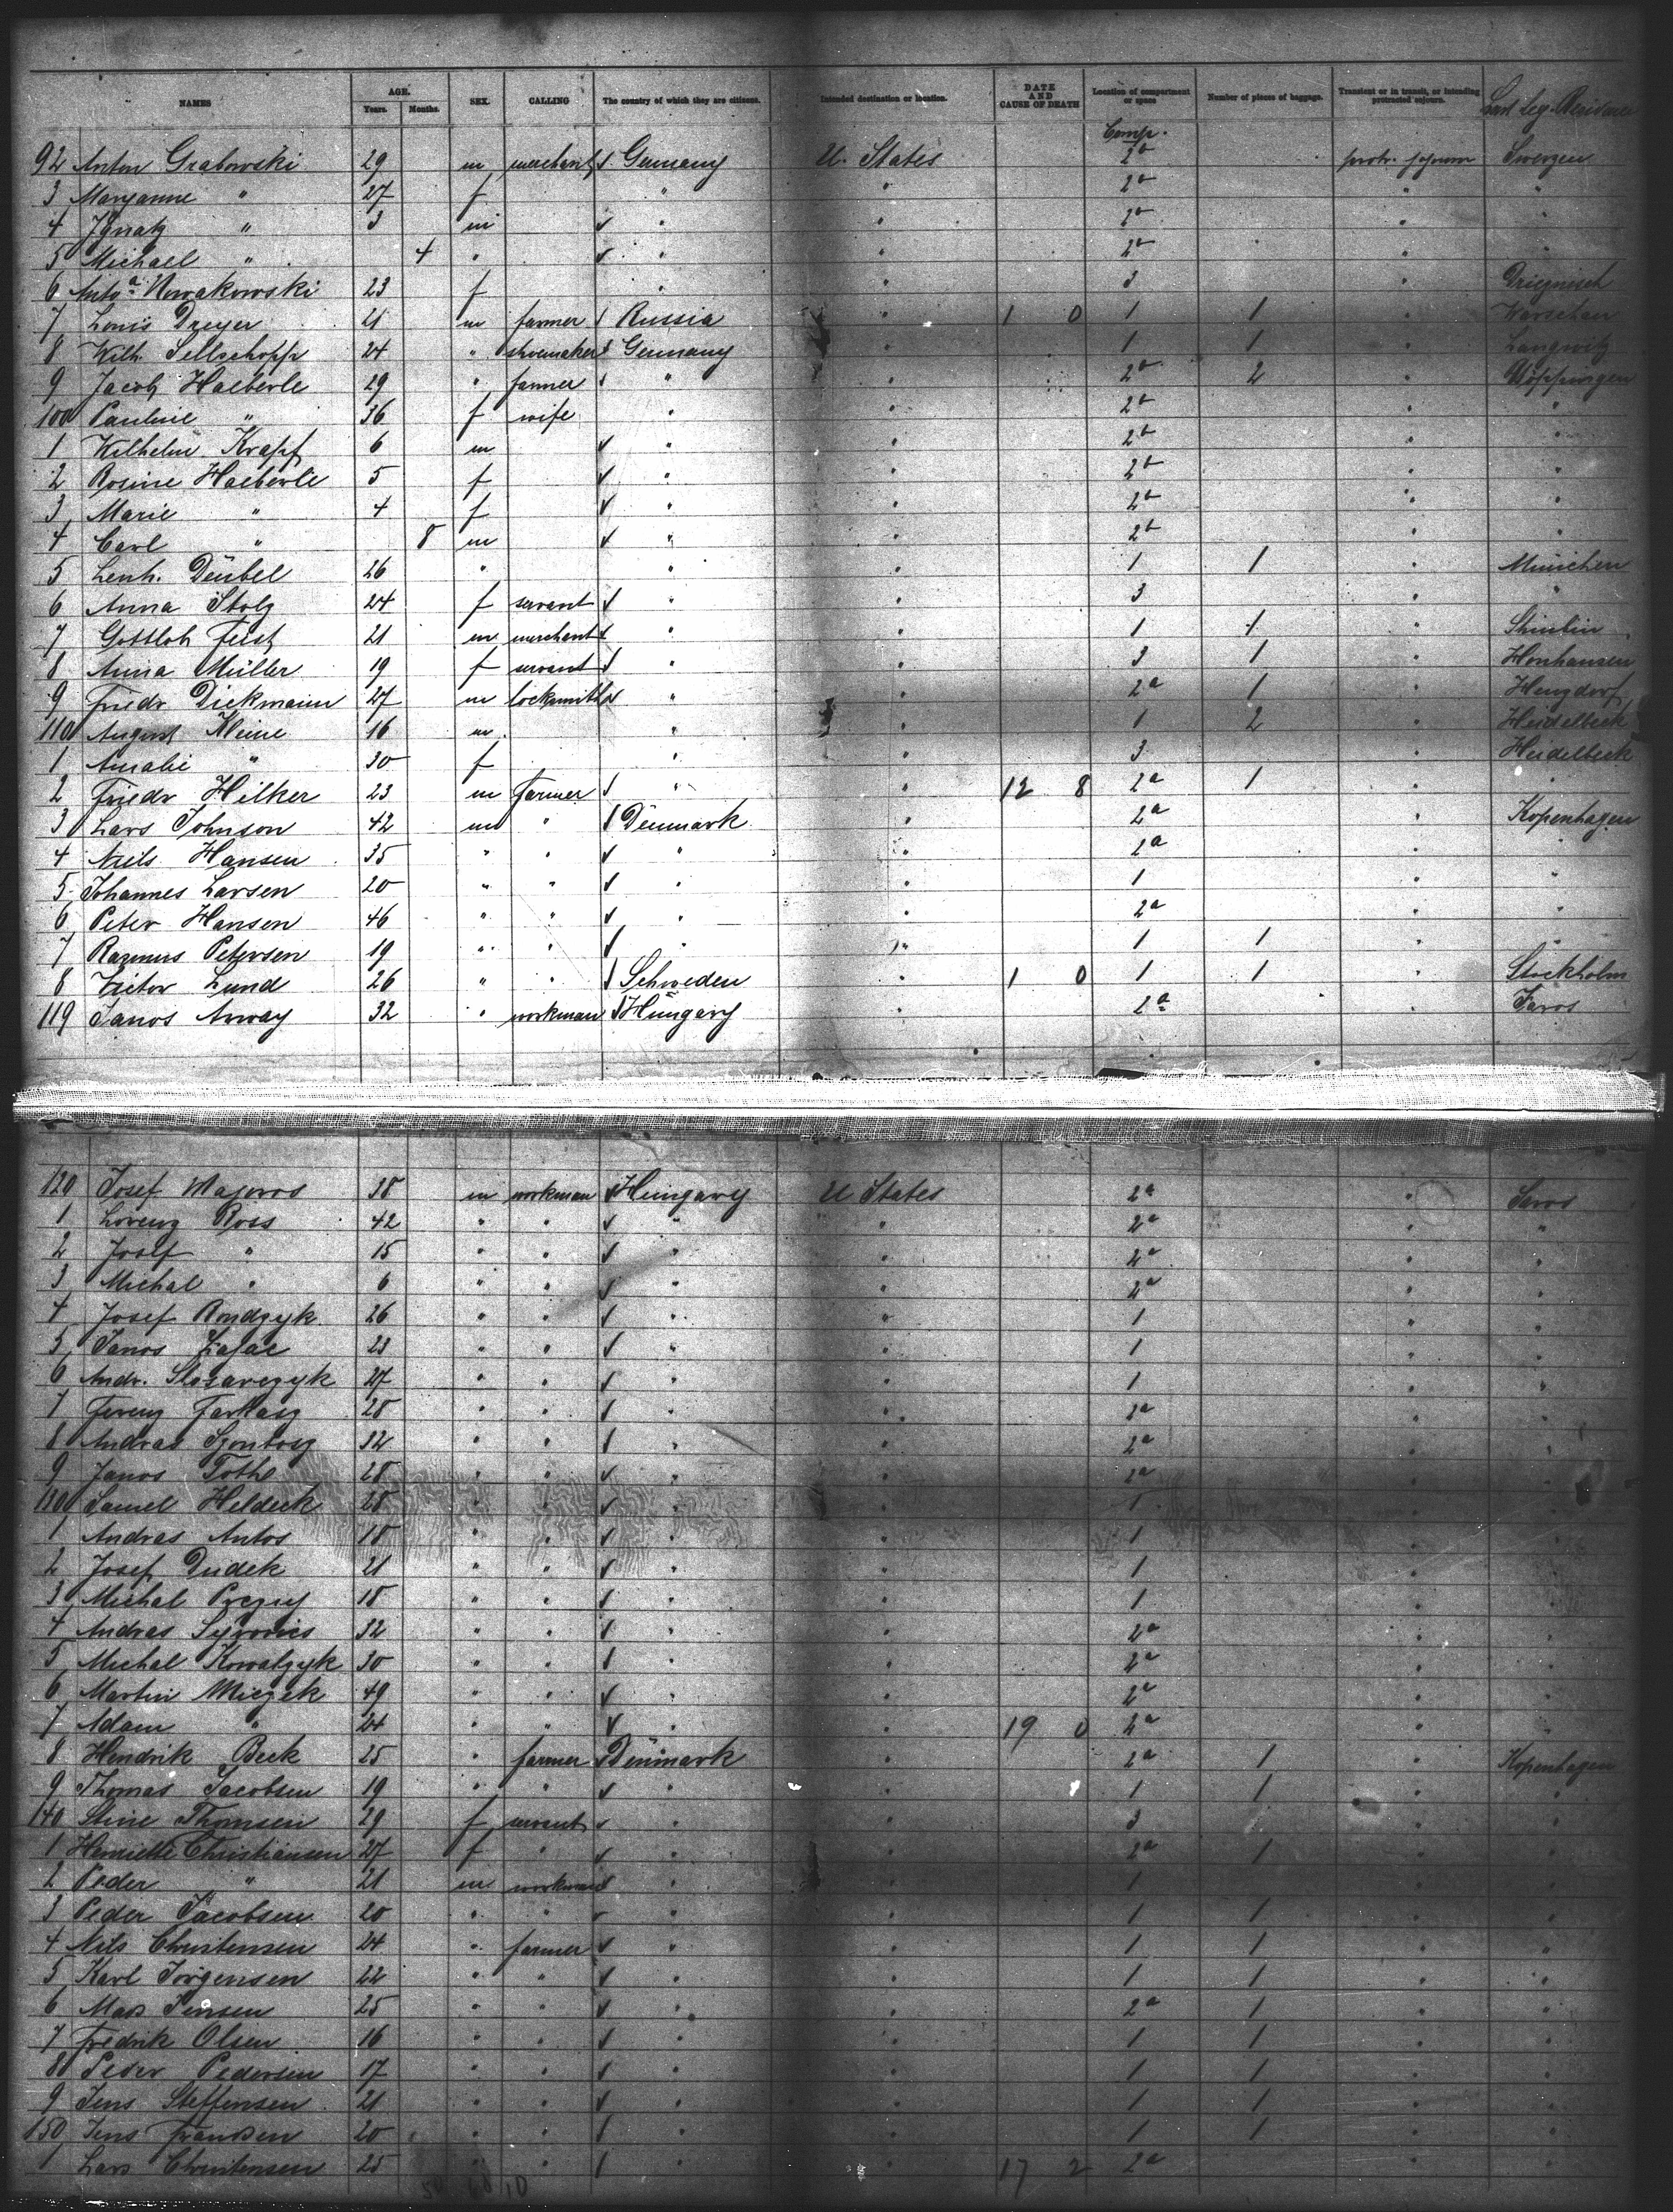 NAMES AGE. Years. Months. SEX. CALLING The country of which they are citizens. Intended destination or location. DATE AND CAUSE OF DEATH Location of compartment or space Number of pieces of baggage. Transient or in transit, or intending protracted sojourn. Last leg. Residence
Comp.
92 Anton Grabowski 29 m merchant Germany U. States 2b protr. sojourn
3 Maryanne " 27 f " " 2b " "
4 Ignatz " 3 m " " 2b " "
5 Michael " 4 " " " 2b " "
6 Anto.a Nowakowski 23 f " " 3 "
7 Louis Dreyer 21 m farmer Russia " 1 0 1 1 " Warschau
8 Wilh. Sellschopp 24 " shoemaker Germany " 1 1 " Langwitz
9 Jacob Haeberle 29 " farmer " " 2b 2 "
100 Pauline " 36 f wife " " 2b " "
1 Wilhelm Krapf 6 m " " 2b " "
2 Rosine Haeberle 5 f " " 2b " "
3 Marie " 4 f " " 2b " "
4 Carl " 8 m " " 2b " "
5 Lenh. Deübel 26 " " " 1 1 " München
6 Anna Stolz 24 f servant " " 3 " "
7 Gottlob Feist 21 m merchant " " 1 1 "
8 Anna Müller 19 f servant " " 3 1 " Honhausen
9 Friedr Diekmann 27 m locksmith " " 2a 1 " Hengdorf
110 August Kleine 16 m " " 1 2 " Heidelbeck
1 Amalie " 30 f " " 3 " Heidelbeck
2 Friedr Hilker 23 m farmer " " 12 8 2a 1 " "
3 Lars Johnson 42 m " Denmark " 2a " Kopenhagen
4 Niels Hansen 35 " " " " 2a " "
5 Johannes Larsen 20 " " " " 1 " "
6 Peter Hansen 46 " " " " 2a " "
7 Rasmus Petersen 19 " " " " 1 1 " "
8 Victor Lund 26 " " Schweden " 1 0 1 1 " Stockholm
119 Janos Arway 32 " workman Hungary " 2a " Saros
120 Josef Majoros 38 m workman Hungary U States 2a " Saros
1 Lorenz Ross 42 " " " " 2a " "
2 Josef " 15 " " " " 2a " "
3 Michal " 6 " " " " 2a " "
4 Josef Rondzyk 26 " " " " 1 " "
5 Janos Zajac 23 " " " " 1 " "
6 Andr. Slosarczyk 27 " " " " 1 " "
7 Ferenz Farkasz 28 " " " " 2a " "
8 Andras Szontosz 32 " " " " 2a " "
9 Janos Tothe 28 " " " " 2a " "
130 Samel Heldeck 28 " " " " 1 " "
1 Andras Antos 18 " " " " 1 " "
2 Josef Dudek 21 " " " " 1 " "
3 Michal 18 " " " " 1 " "
4 Andras 32 " " " " 2a " "
5 Michal Kowalzyk 30 " " " " 2a " "
6 Martin Miczek 49 " " " " 2a " "
7 Adam " 24 " " " " 19 0 2a " "
8 Hendrik Beck 25 " farmer Denmark " 2a 1 " Kopenhagen
9 Thomas Jacobsen 19 " " " " 1 1 " "
140 Stine Thomsen 29 f servant " " 3 " "
1 Henriette Christiansen 27 f " " " 2a 1 " "
2 Peder " 21 m workman " " 1 " "
3 Peder Jacobsen 20 " " " " 1 1 " "
4 Nils Christensen 24 " farmer " " 1 1 " "
5 Karl Jörgensen 22 " " " " 1 1 " "
6 Mads Jensen 25 " " " " 2a 1 " "
7 Fredrik Olsen 16 " " " " 1 1 " "
8 Peder Pedersen 17 " " " " 1 1 " "
9 Jens Steffensen 21 " " " " 1 1 " "
150 Jens Frandsen 20 " " " " 1 1 " "
1 Lars Christensen 25 " " " " 17 2 2a " "